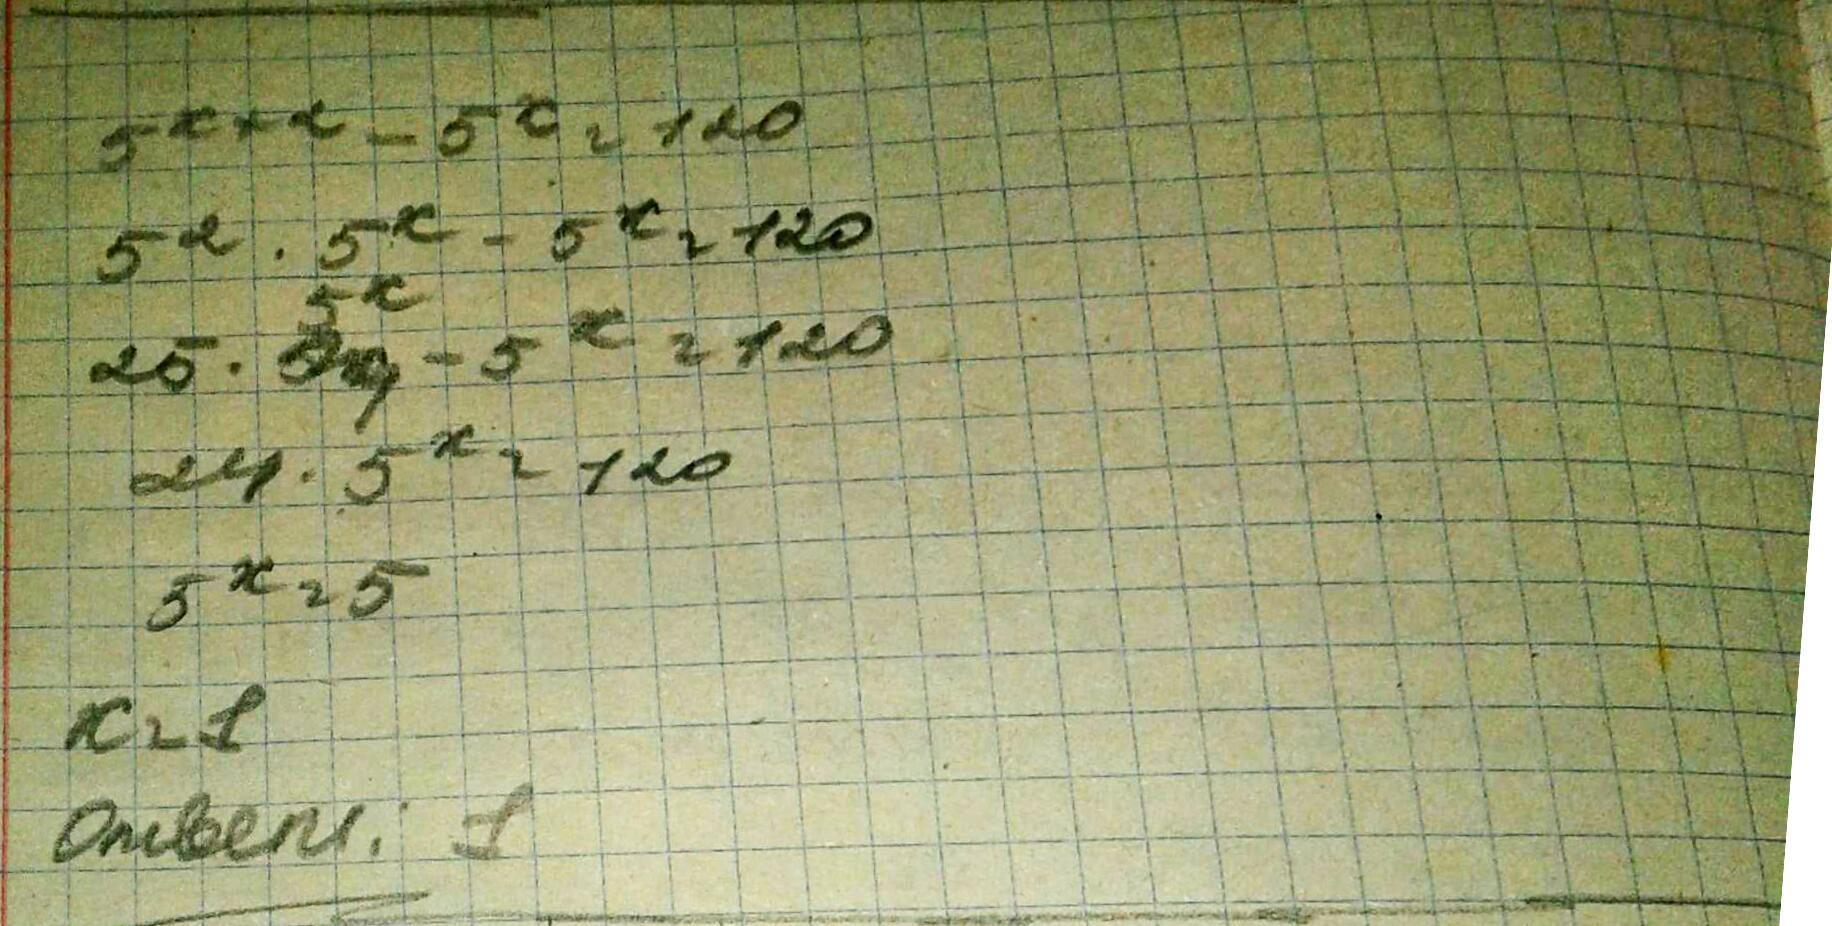 5^{x+2} - 5^x = 120
5^2 · 5^x - 5^x = 120
25 · 5^x - 5^x = 120
24 · 5^x = 120
5^x = 5
x = 1
Ответ: 1